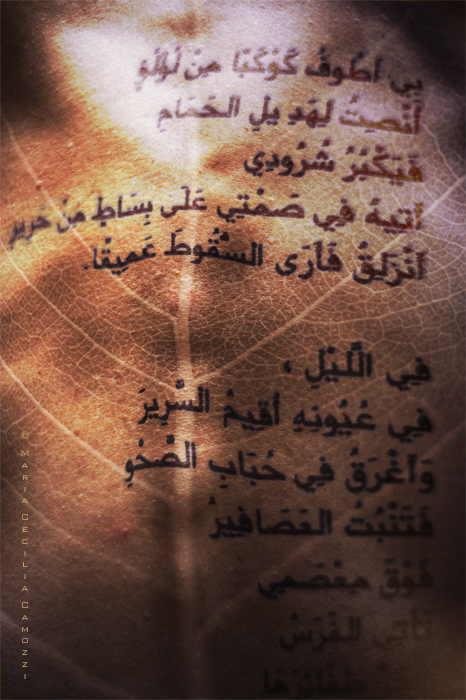 بِي أطُوفُ كَوْكَبًا مِنْ لُؤْلُؤٍ
أُنْصِتُ لِهَدِيلِ الحَمَامِ
فَيَكْبُرُ شُرُودِي
أتِيهُ فِي صَمْتِي عَلَى بِسَاطِ مِنْ حَرِيرٍ
أنْزَلِقُ فَأرَى السُّقُوطَ عَمِيقًا.
فِي اللَّيْلِ ،
فِي عُيُونِهِ أقِيمُ السَّرِيرَ
وَأغْرَقُ فِي حُبَابِ الصَّحْوِ
فَتَنْبُتُ العَصَافِيرُ
فَوْقَ مِعْصَمِي
تَأتِي الفَرَسُ
© MARIA CECILIA CAMOZZI